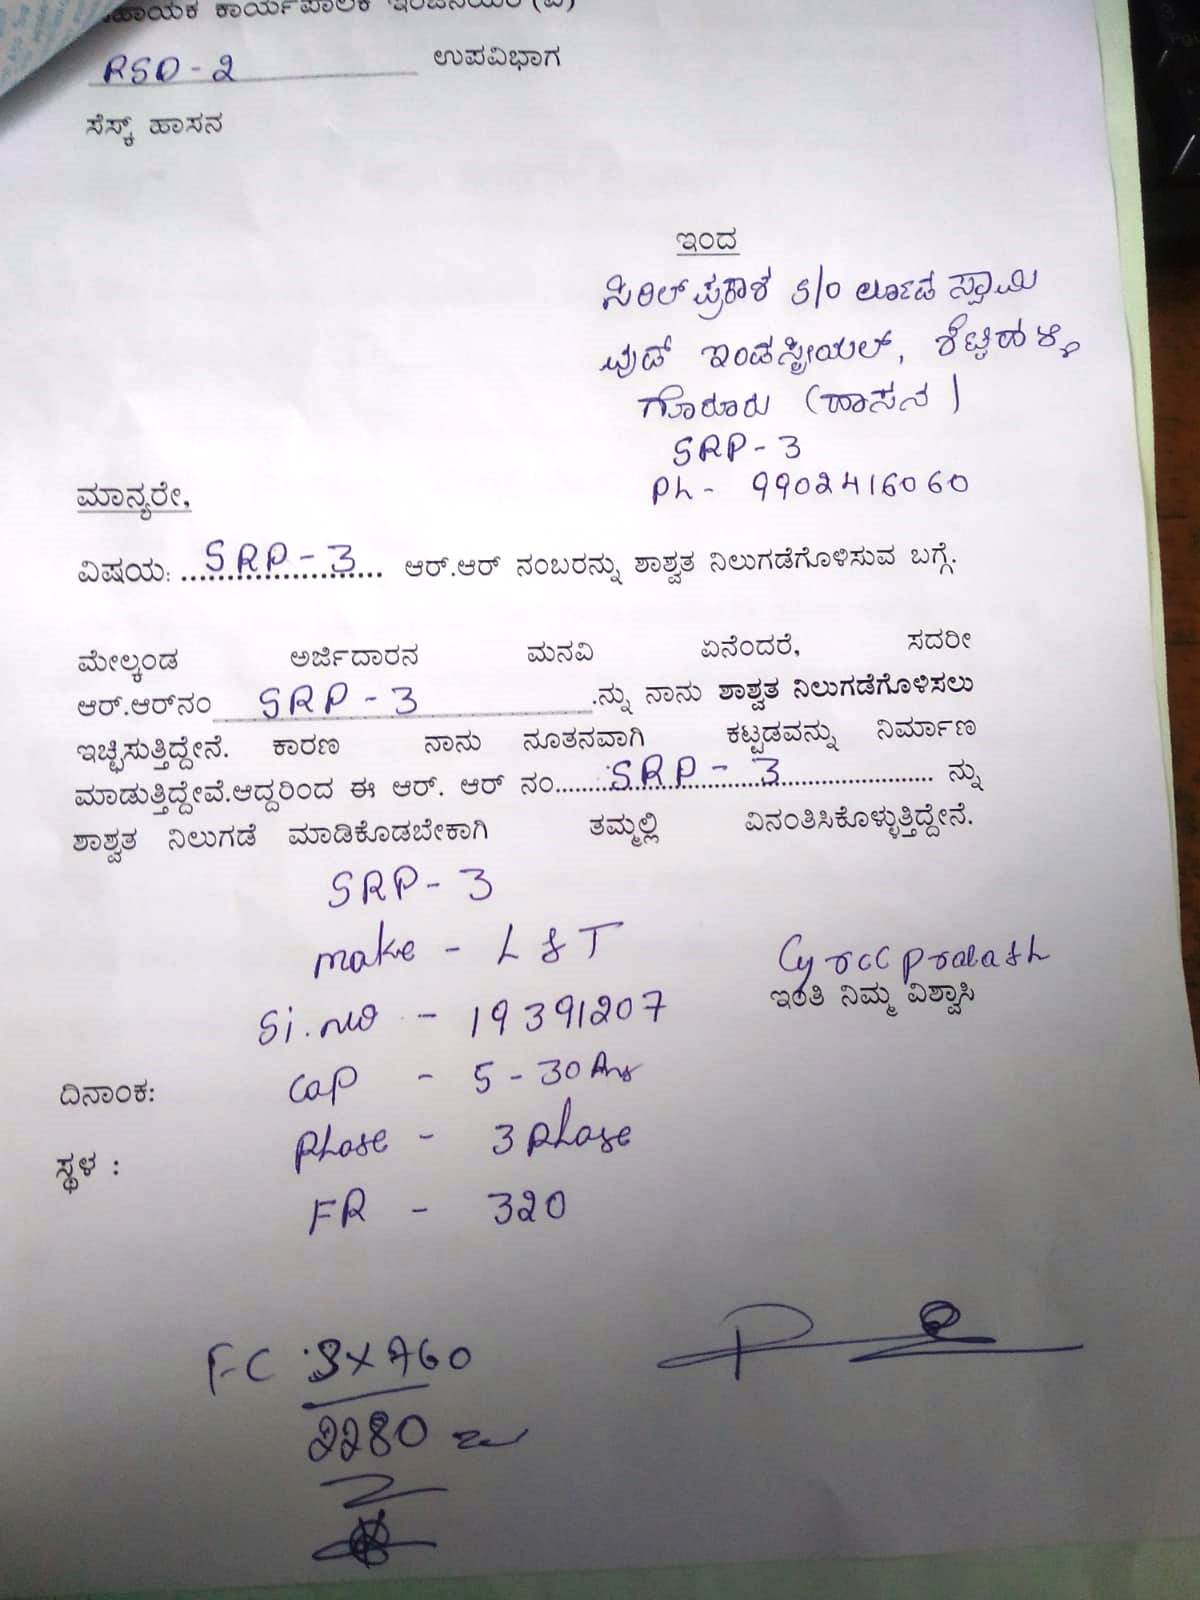 ಸಹಾಯಕ ಕಾರ್ಯಪಾಲಕ ಇಂಜಿನಿಯರ್ (ವಿ)
RSD - 2 ಉಪವಿಭಾಗ
ಸೆಸ್ಕ್ ಹಾಸನ
ಇಂದ
ಸಿರಿಲ್ ಪ್ರಕಾಶ S/o ಲೂರ್ದು ಸ್ವಾಮಿ
ವುಡ್ ಇಂಡಸ್ಟ್ರೀಯಲ್, ಶೆಟ್ಟಿಹಳ್ಳಿ
ಗೊರೂರು (ಹಾಸನ)
SRP - 3
Ph - 9902416060
ಮಾನ್ಯರೇ,
ವಿಷಯ: SRP - 3 ಆರ್.ಆರ್ ನಂಬರನ್ನು ಶಾಶ್ವತ ನಿಲುಗಡೆಗೊಳಿಸುವ ಬಗ್ಗೆ.
ಮೇಲ್ಕಂಡ ಅರ್ಜಿದಾರನ ಮನವಿ ಏನೆಂದರೆ, ಸದರೀ
ಆರ್.ಆರ್‌ನಂ SRP - 3 .ನ್ನು ನಾನು ಶಾಶ್ವತ ನಿಲುಗಡೆಗೊಳಿಸಲು
ಇಚ್ಛಿಸುತ್ತಿದ್ದೇನೆ. ಕಾರಣ ನಾನು ನೂತನವಾಗಿ ಕಟ್ಟಡವನ್ನು ನಿರ್ಮಾಣ
ಮಾಡುತ್ತಿದ್ದೇವೆ.ಆದ್ದರಿಂದ ಈ ಆರ್. ಆರ್ ನಂ. SRP - 3 ನ್ನು
ಶಾಶ್ವತ ನಿಲುಗಡೆ ಮಾಡಿಕೊಡಬೇಕಾಗಿ ತಮ್ಮಲ್ಲಿ ವಿನಂತಿಸಿಕೊಳ್ಳುತ್ತಿದ್ದೇನೆ.
SRP - 3
make - L & T
Si. no - 19391207
ಇಂತಿ ನಿಮ್ಮ ವಿಶ್ವಾಸಿ
ದಿನಾಂಕ:
Cap - 5 - 30
Phase - 3 phase
ಸ್ಥಳ :
FR - 320
FC 3x760
2280